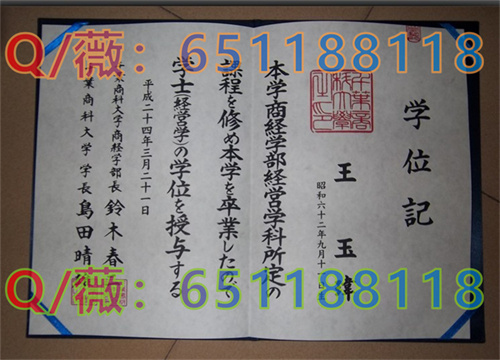 Q/薇：651188118
学位記
王 玉
昭和六十二年九月十
本学商経学部経営学科所定の
課程を修め本学を卒業したので
学士（経営学）の学位を授与する
平成二十四年三月二十一日
千葉商科大学商経学部長 鈴木春
千葉商科大学学長 島田晴
Q/薇：651188118